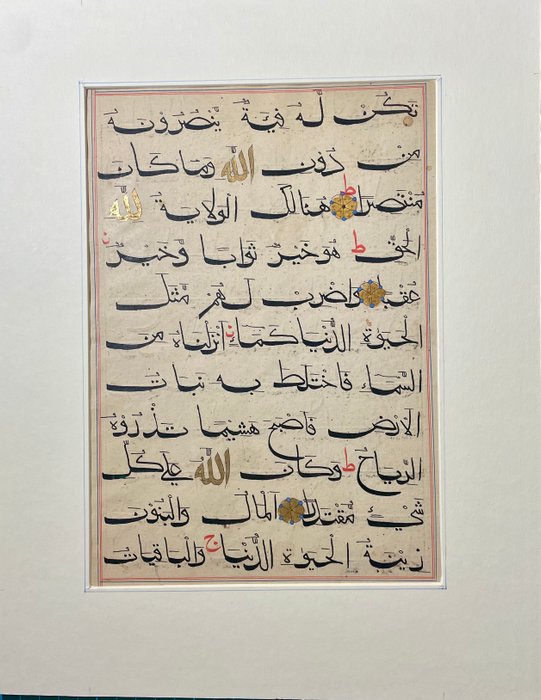 تَكُنْ لَهُ فِيَةٌ يَنْصُرُونَهُ
مِنْ دُونِ اللَّهِ وَمَا كَانَ
مُنْتَصِرًا ط هُنَالِكَ الْوَلَايَةُ لِلَّهِ
الْحَقِّ ط هُوَ خَيْرٌ ثَوَابًا وَخَيْرٌ ن
عُقْبًا وَاضْرِبْ لَهُمْ مَثَلَ
الْحَيٰوةِ الدُّنْيَا كَمَاءٍ ن اَنْزَلْنَاهُ مِنَ
السَّمَاءِ فَاخْتَلَطَ بِهِ نَبَاتُ
الْاَرْضِ فَاَصْبَحَ هَشِيمًا تَذْرُوهُ
الرِّيَاحُ ط وَكَانَ اللَّهُ عَلٰى كُلِّ
شَيْءٍ مُقْتَدِرًا اَلْمَالُ وَالْبَنُونَ
زِينَةُ الْحَيٰوةِ الدُّنْيَا ج وَالْبَاقِيَاتُ